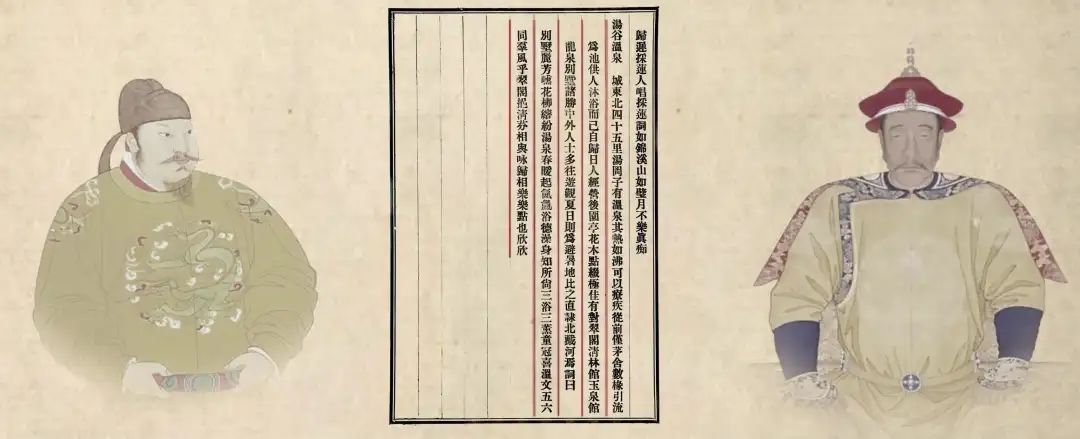 歸遲採蓮人唱採蓮詞如錦溪山如璧月不樂真痴
湯谷溫泉　城東北四十五里湯岡子有溫泉其熱如沸可以療疾從前僅茅舍數椽引流
爲池供人沐浴而已自歸日人經營後園亭花木點綴極佳有對翠閣清林館玉泉館
龍泉別墅諸勝中外人士多往遊觀夏日則爲避暑地比之直隸北戴河焉詞曰
別墅麗芳嬌花柳繽紛湯泉春暖起氤氳浴德澡身知所尙三浴三薰童冠喜溫文五六
同羣風乎翠閣挹清芬相與咏歸相樂樂點也欣欣